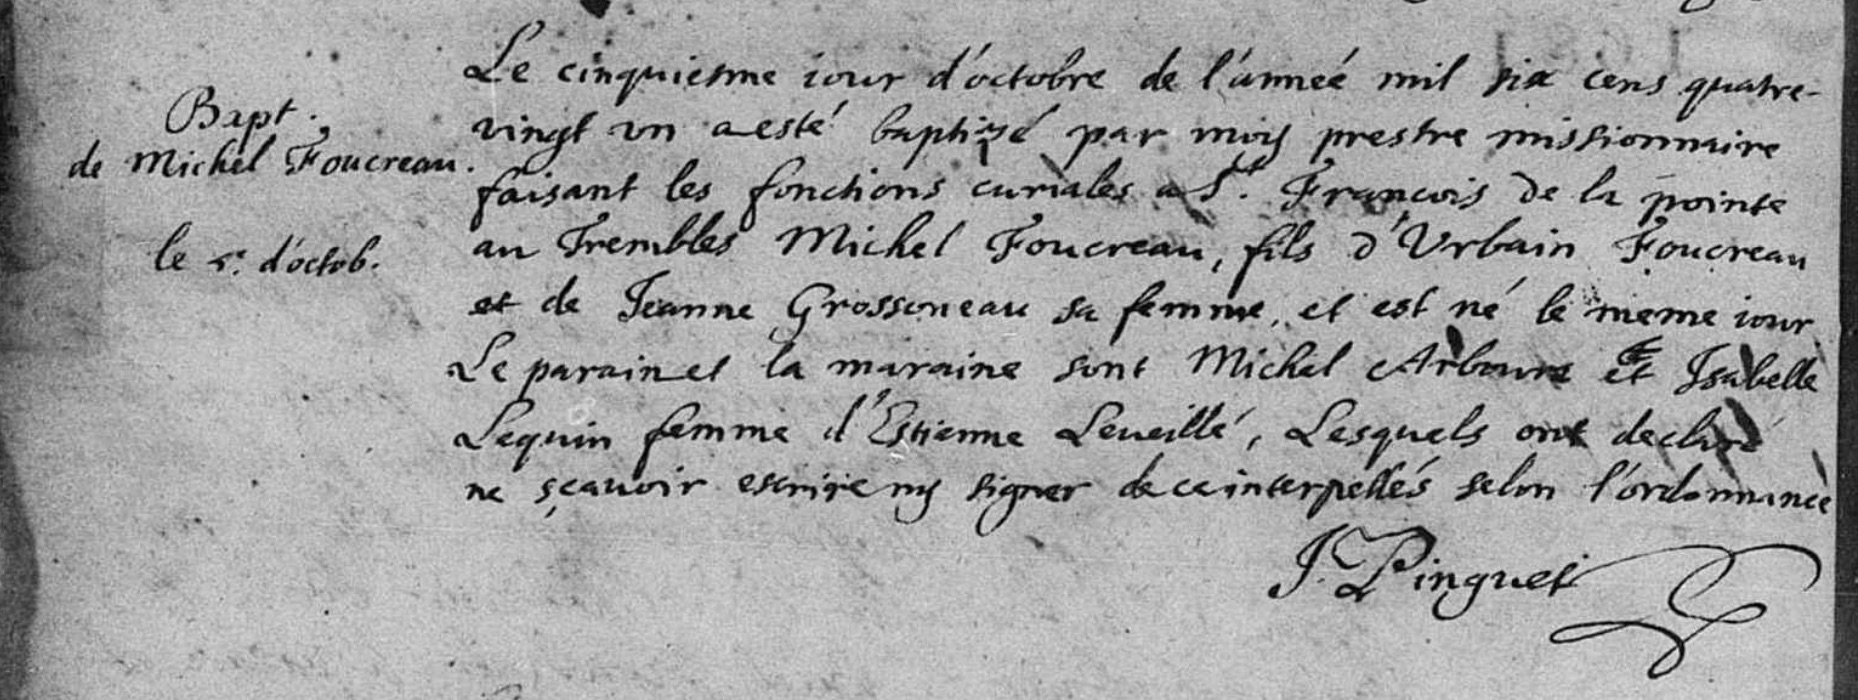 Bapt.
de Michel Foucreau.
le 5e. d'octob.
Le cinquiesme iour d'octobre de l'anneé mil six cens quatre-
vingt vn a esté baptizé par moy prestre missionnaire
faisant les fonctions curiales a St. Francois de la pointe
au Trembles Michel Foucreau, fils d'Vrbain Foucreau
et de Jeanne Grossoneau sa femme, et est né le meme iour
Le parain et la maraine sont Michel Arbour et Isabelle
Lequin femme d'Estienne Leueillé, Lesquels ont declaré
ne sçauoir escrire ny signer de ce interpellés selon l'ordonnance
J. Pinguet